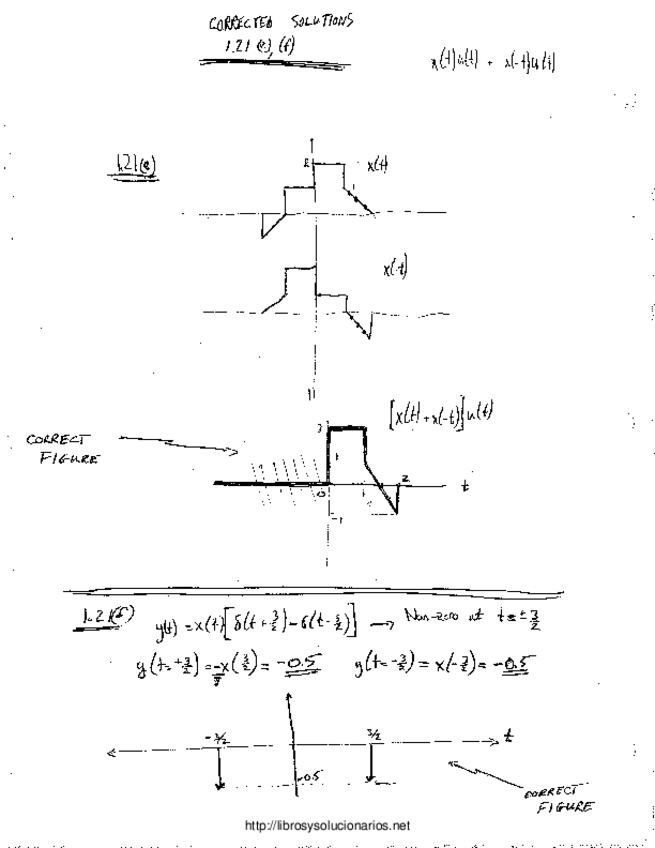 CORRECTED SOLUTIONS
1.21 (e), (f)
x(t)u(t) + x(-t)u(t)
1.21(e)
2
x(t)
1
x(-t)
[x(t)+x(-t)]u(t)
3
1
0
1
2
t
-1
CORRECT
FIGURE
1.21(f)
y(t) = x(t)[δ(t+3/2)-δ(t-3/2)] → Non-zero at t=±3/2
y(t=+3/2) = -x(3/2) = -0.5 y(t=-3/2) = x(-3/2) = -0.5
-3/2
3/2
t
-0.5
CORRECT
FIGURE
http://librosysolucionarios.net